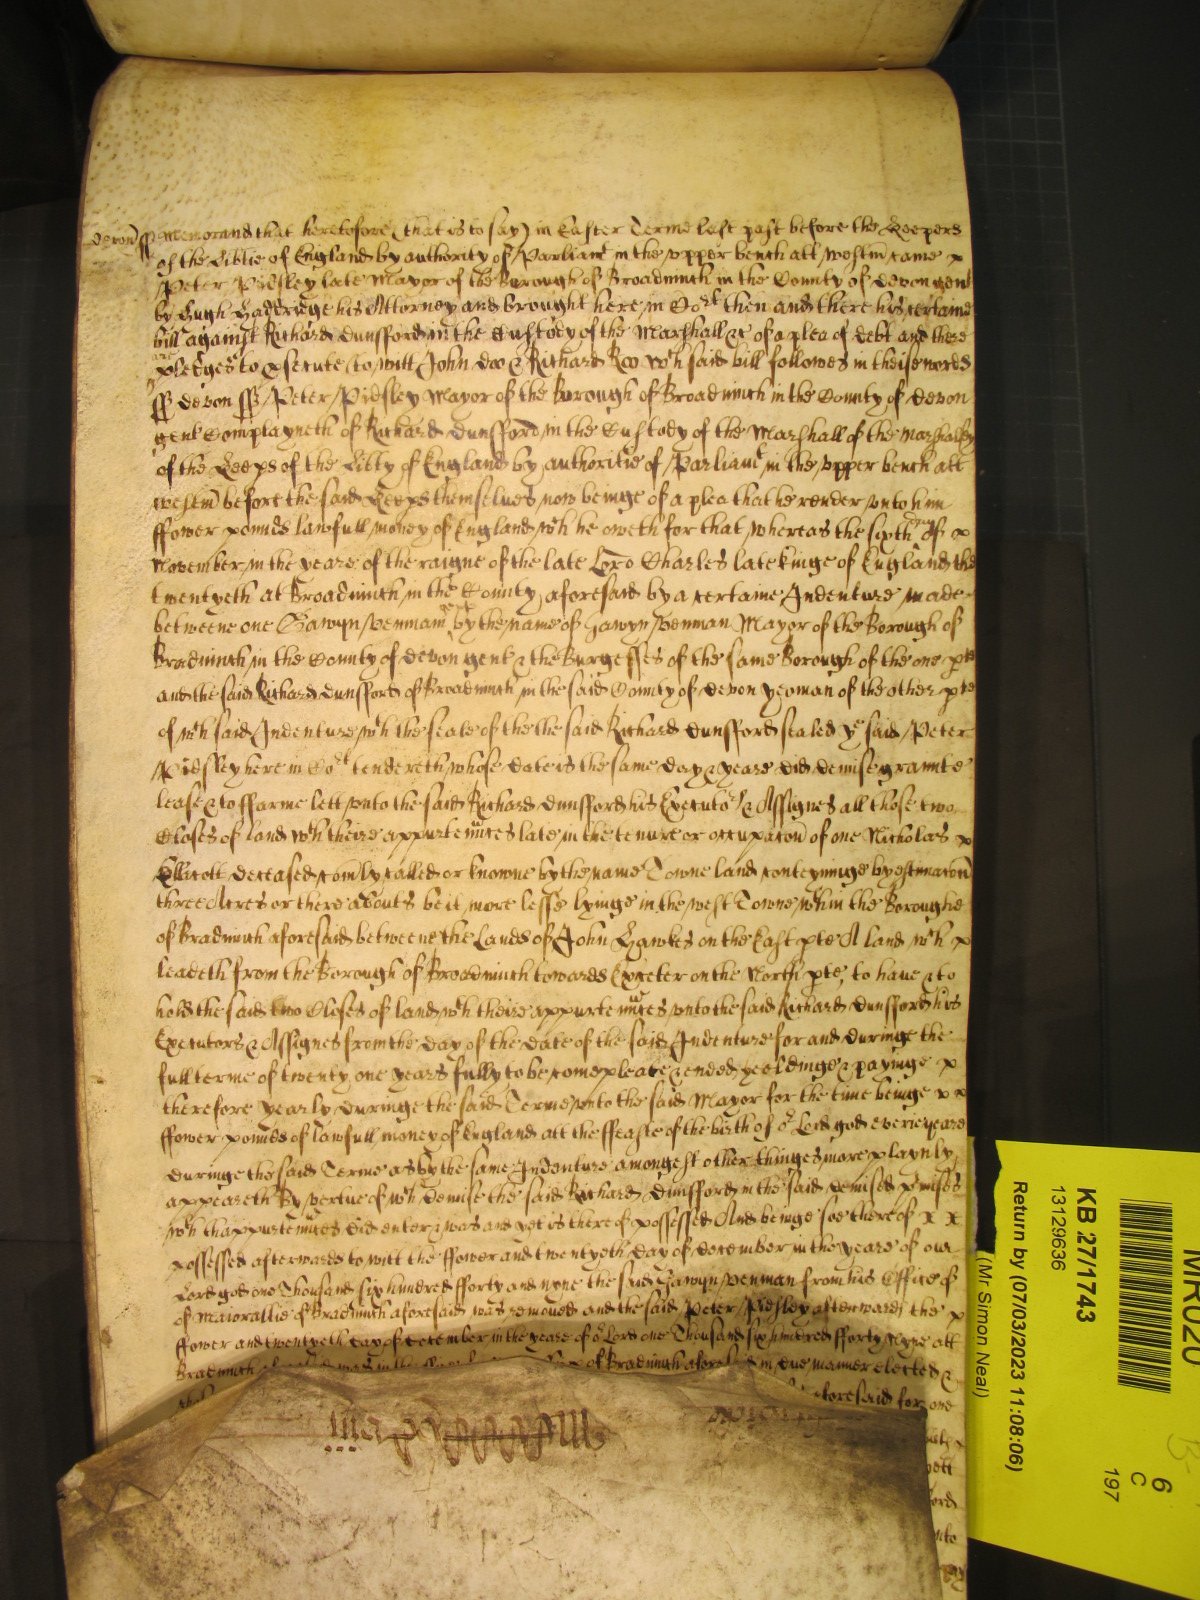 Devon ss Memorand that heretofore (that is to say) in Easter Terme last past before the Keepers
of the Libtie of England by authority of Parliamt in the upper bench att Westm came x
Peter Pidsley late Mayor of the Burough of Broadninch in the County of Devon gent
by Hugh his Attorney and brought here in Cort then and there his certaine
bill against Richard Dunsford in the Custody of the Marshall &c of a plea of debt and there
are pledges to psecute (to witt) John Doo & Richard Roo wch said bill followes in theise words
ss Devon ss Peter Pidsley Mayor of the Borough of Broadninch in the County of Devon
gent Complayneth of Richard Dunsford in the Custody of the Marshall of the Marshalsey
of the Keeps of the Libty of England by authoritie of Parliamt in the upper bench att
westm before the said Keeps themselves now beinge of a plea that he render unto him
ffower pounds lawfull money of England wch he oweth for that whereas the sixth day of x
November in the yeare of the raigne of the late Lord Charles late kinge of England the
twentyeth at Broadninch in the County aforesaid by a certaine Indenture made
betweene one Gawyn Penman by the name of Gawyn Penman Mayor of the Borough of
Bradninch in the County of Devon gent & the Burgesses of the same Borough of the one pte
and the said Richard Dunsford of Broadninch in the said County of Devon yeoman of the other pte
of wch said Indenture wth the seale of the the said Richard Dunsford sealed ye said Peter
Pidsley here in Cort tendereth whose date is the same day & yeare did demise graunte
lease & to ffarme lett unto the said Richard Dunsford his Executors & Assignes all those two
Closes of land wth theire appurtennces late in the tenure or occupacon of one Nicholas x
Ellicott deceased comly called or knowne by the name Towne land conteyninge by estimacon
three Acres or there abouts be it more lesse lyinge in the west Towne wthin the Boroughe
of Bradninch aforesaid betweene the Lands of John Hawkes on the East pte A land wch x
leadeth from the Borough of Broadninch towards Exceter on the North pte, to have & to
hold the said two Closes of land wth theire appurtennces unto the said Richard Dunsford his
Executors & Assignes from the day of the date of the said Indenture for and duringe the
full terme of twenty one years fully to be compleate & ended yeeldinge & payinge x
therefore yearly duringe the said Terme unto the said Mayor for the time beinge x x
ffower pounds of lawfull money of England att the ffeaste of the birth of or Lord god everie yeare
duringe the said Terme as by the same Indenture amongest other thinges more playnly
appeareth By vertue of wch demise the said Richard Dunsford in the said demised pmisses
wth thappurtennces did enter & was and yet is there of possessed And beinge soe thereof x x
possessed afterwards to witt the ffower and twentyeth day of December in the yeare of our
Lord god one Thousand six hundred fforty and nyne the said Gawyn Penman from his Office of
of Maioraltie of Bradninch aforesaid was removed and the said Peter Pidsley afterwards the x
ffower and twentyeth day of December in the yeare of or Lord one Thousand six hundred fforty Nyne att
Bradninch of Bradninch aforesaid in due manner elected &
aforesaid for one
KB 27/1743
13129636
Return by (07/03/2023 11:08:06)
(Mr Simon Neal)
MR020
6
C
197